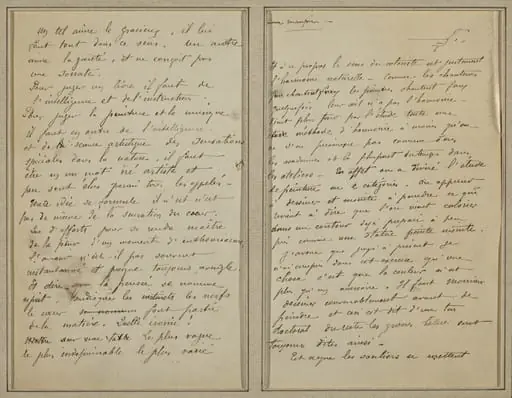 Un tel aime le gracieux, il lui
faut tout dans ce sens. Un autre
aime la gaieté, et ne conçoit pas
une Sonate.
Pour juger un livre il faut de
l'intelligence et de l'instruction.
Pour juger la peinture et la musique
il faut en outre de l'intelligence
et de la science artistique des sensations
spéciales dans la nature, il faut
être en un mot né artiste et
peu sont élus parmi tous les appelés.
idée se formule il n'en est
pas de même de la sensation du coeur.
Que d'efforts pour se rendre maître
de la peur d'un moment d'enthousiasme.
L'amour n'est-il pas souvent
instantané et presque toujours aveugle
Et dire que la pensée se nomme
esprit tandis que les nerfs
le coeur font partie
de la matière. Quelle ironie!
le plus vague
le plus indéfinissable le plus varié
mauvaise
Et à ce propos le sens du coloriste est justement
l'harmonie naturelle. Comme les chanteurs
les peintres chantent faux
quelquefois leur oeil n'a pas l'harmonie.
Vient plus tard par l'étude toute une
méthode d'harmonie à moins qu'on
ne s'en préoccupe pas comme dans
les académies et la plupart du temps dans
les ateliers. En effet on a divisé l'étude
de peinture en 2 catégories. On apprend
à dessiner et ensuite à peindre ce qui
revient à dire que l'on vient colorier
dans un contour tout préparé à peu
près comme une statue peinte ensuite.
J'avoue que jusqu'à présent je
n'ai compris dans cet exercice qu'une
chose c'est que la couleur n'est
plus qu'un accessoire. Il faut Monsieur
dessiner convenablement avant de
peindre et ceci est dit d'un ton
doctoral du reste les grosses bêtises sont
toujours dites ainsi.
Est-ce que les souliers se mettent